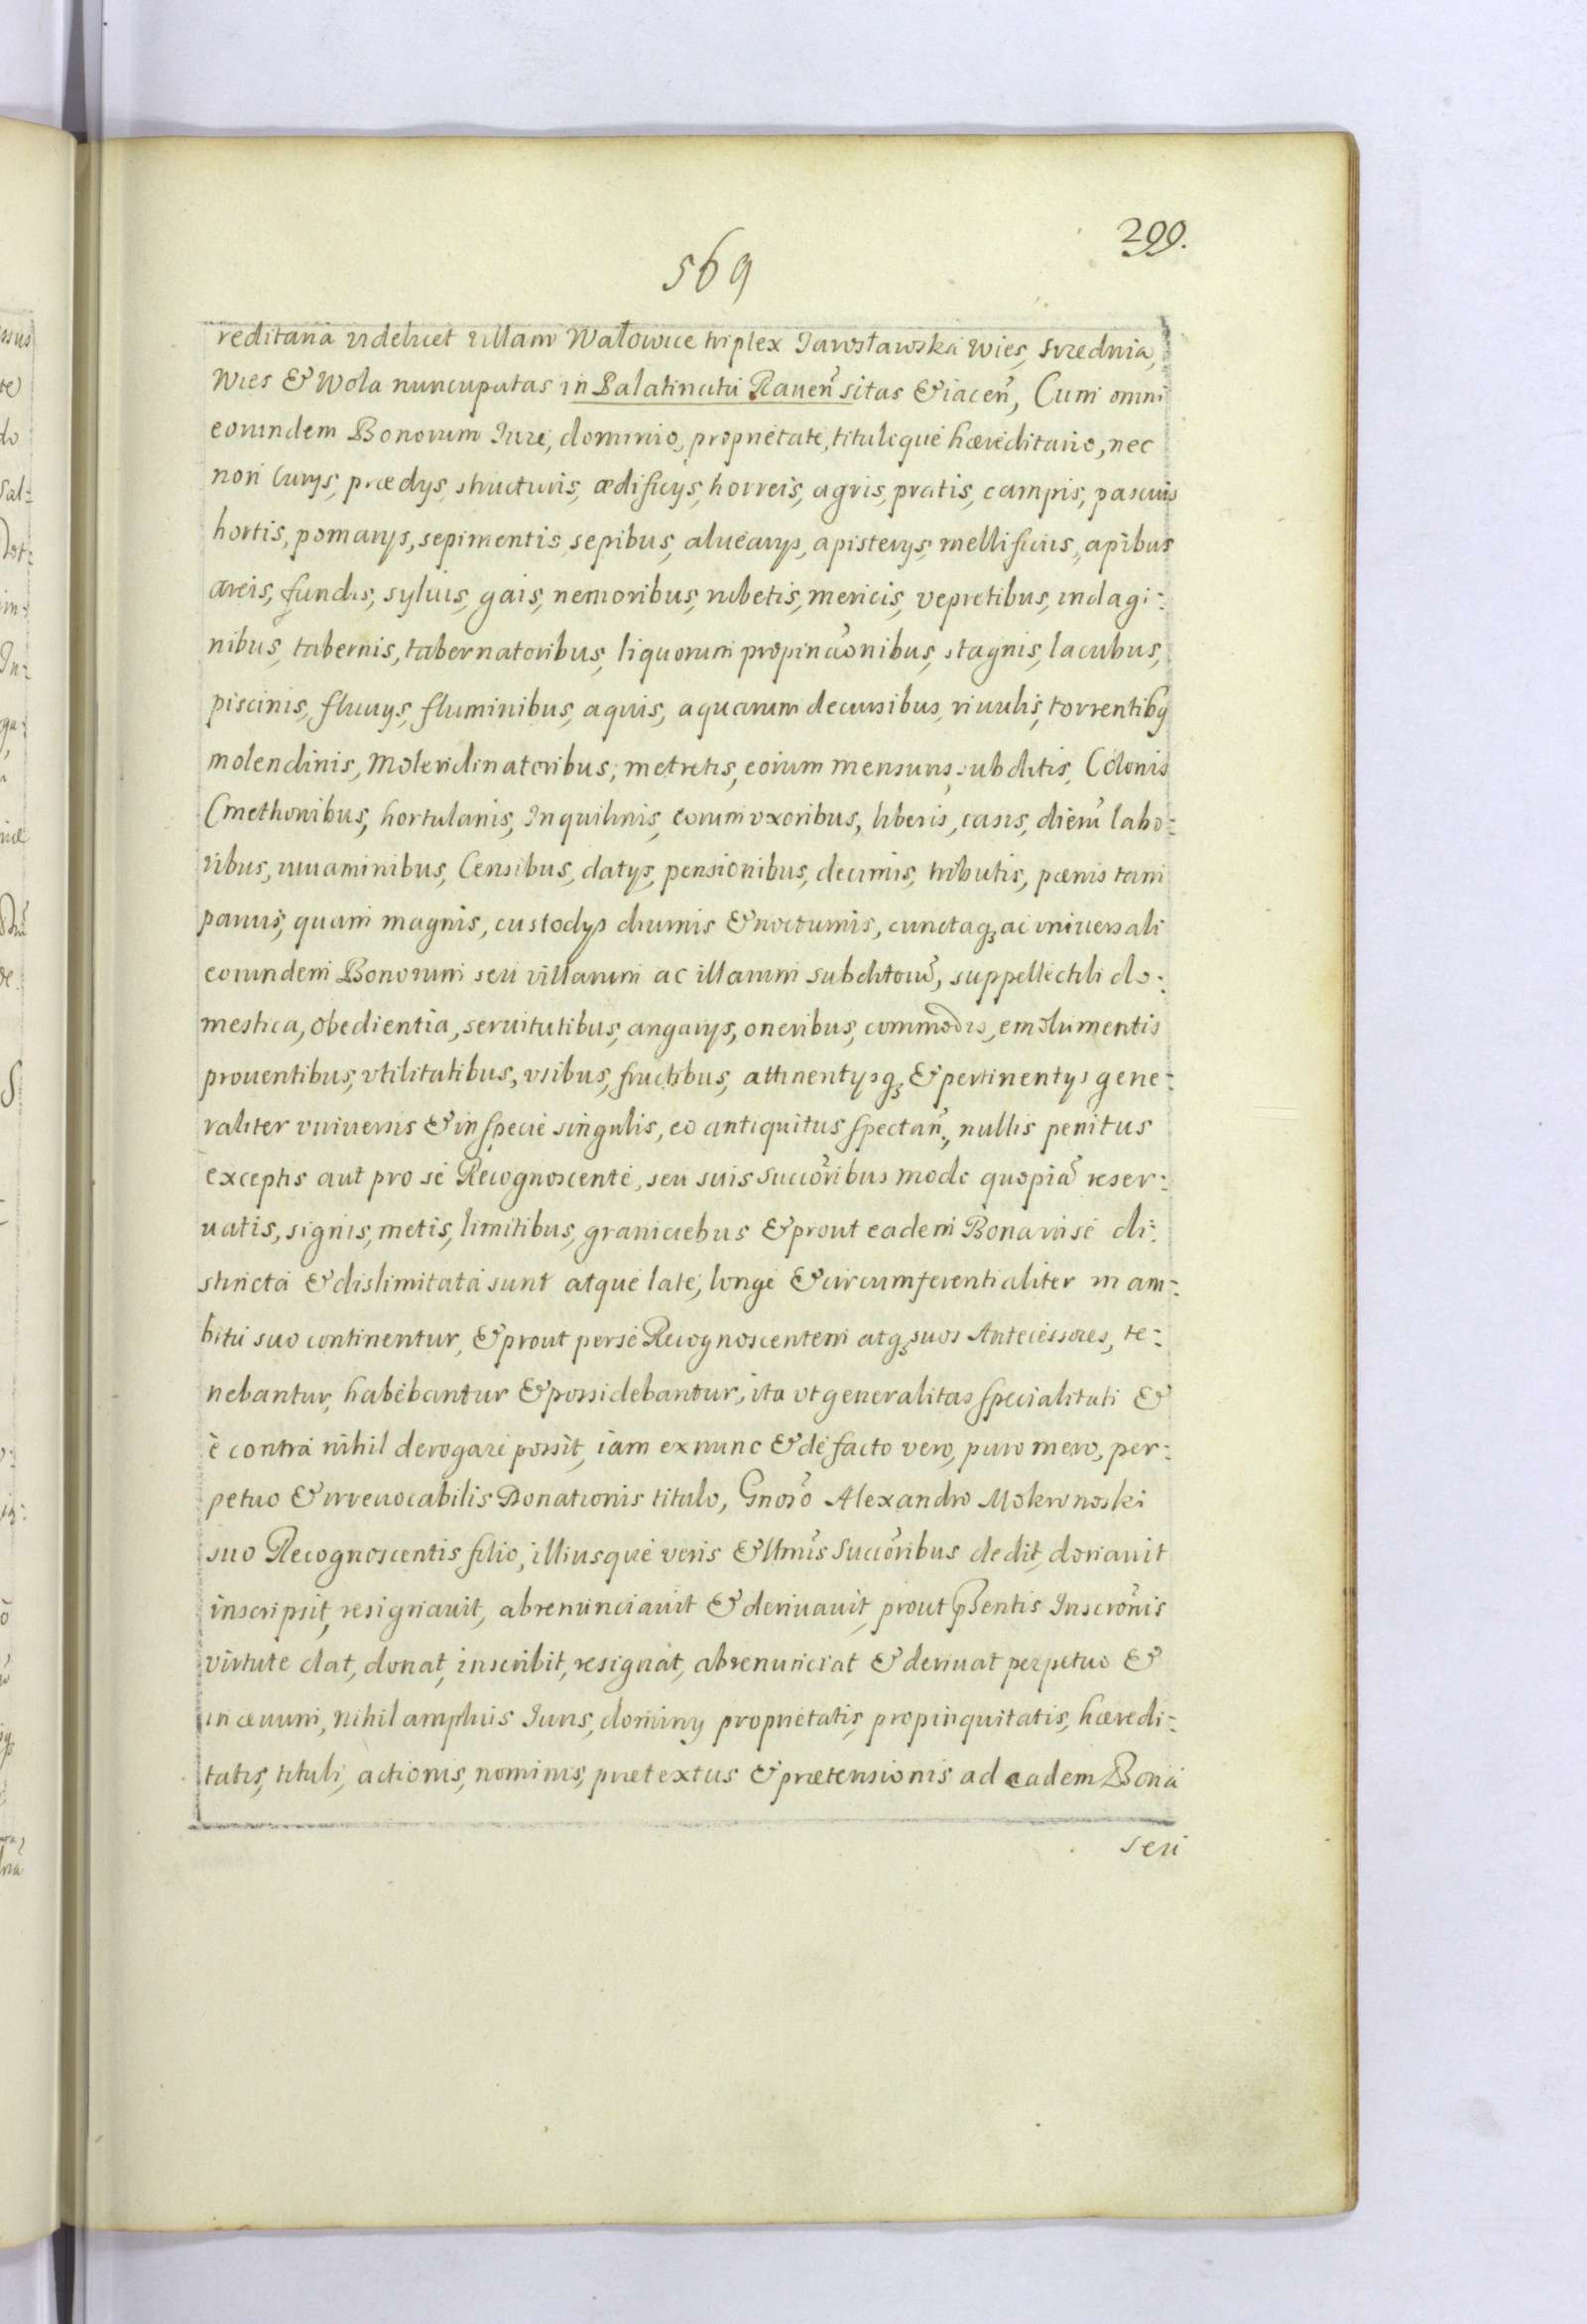 299.
569
reditaria videlicet villam Wałowice triplex Jarosławska wies, srzednia,
wies & Wola nuncupatas in Palatinatu Rauen̄ sitas & iacen̄, Cum omni
eorundem Bonorum Jure, dominio, proprietate, tituloque hæreditario, nec
non Curys, prædys, structuris, ædificys, horreis, agris, pratis, campis, pascuis
hortis, pomarys, sepimentis sepibus, aluearys, apisterys, mellificiis, apibus
areis, fundis, syluis, gais, nemoribus, rubetis, mericis, vepretibus, indagi-:
nibus, tabernis, tabernatoribus, liquorum propinaōnibus, stagnis, lacubus,
piscinis, fluuys, fluminibus, aquis, aquarum decursibus, riuulis, torrentibq
molendinis, Molendinatoribus, metretis, eorum mensuris, subditis, Colonis
Cmethonibus, hortulanis, Inquilinis, eorum vxoribus, liberis, casis, dierū labo-:
ribus, iuuaminibus, Censibus, datys, pensionibus, decimis, tributis, pænis tam
paruis, quam magnis, custodys diurnis & nocturnis, cunctaq₃ ac vniuersali
eorundem Bonorum seu villarum ac illarum subditorū, suppellectili do-:
mestica, obedientia, seruitutibus, angarys, oneribus, commodis, emolumentis
prouentibus, vtilitatibus, vsibus, fructibus, attinentysq₃ & pertinentys gene-:
raliter vniuersis & in specie singulis, eo antiquitus spectan̄, nullis penitus
exceptis aut pro se Recognoscente, seu suis succōribus modo quopiā reser-:
uatis, signis, metis, limitibus, graniciebus & prout eadem Bona in se di-:
stincta & dislimitata sunt atque late, longe & circumferentialiter in am-:
bitu suo continentur, & prout per se Recognoscentem atq₃ suos Antecessores, te-:
nebantur, habebantur & possidebantur, ita vt generalitas specialitati &
è contra nihil derogare possit, iam ex nunc & de facto vero, puro mero, per-:
petuo & irreuocabilis Donationis titulo, Gnoso Alexandro Mokronoski
suo Recognoscentis filio, illiusque veris & ltmis Succōribus dedit, donauit
inscripsit, resignauit, abrenunciauit & deriuauit, prout pn̄tis Inscrōnis
virtute dat, donat, inscribit, resignat, abrenunciat & deriuat perpetuo &
in æuum, nihil amplius Juris, dominy proprietatis, propinquitatis, hæredi-:
tatis, tituli, actionis, nominis, prætextus & prætensionis ad eadem Bona
seu